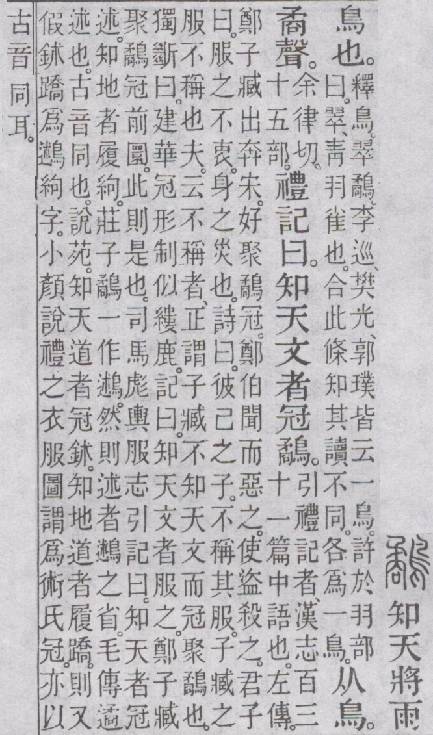 鷸知天將雨
鳥也。釋鳥。翠鷸。李巡、樊光、郭璞皆云一鳥。許於羽部
曰。翠、靑羽雀也。合此條知其讀不同。各爲一鳥。从鳥。
矞聲。余律切。十五部。禮記曰。知天文者冠鷸。引禮記者、漢志百三
十一篇中語也。左傳。
鄭子臧出奔宋。好聚鷸冠。鄭伯聞而惡之。使盜殺之。君子
曰。服之不衷。身之災也。詩曰。彼己之子。不稱其服。子臧之
服不稱也夫。云不稱者、正謂子臧不知天文而冠聚鷸也。
獨斷曰。建華冠形制似縷鹿。記曰。知天文者服之。鄭子臧
聚鷸冠前圜。此則是也。司馬彪輿服志引記曰。知天者冠
述。知地者履絇。莊子鷸一作鶐。然則述者鶐之省。毛傳遹
述也。古音同也。說苑。知天道者冠鉥。知地道者履蹻。則又
假鉥蹻爲鶐絇字。小顏說禮之衣服圖謂爲術氏冠。亦以
古音同耳。